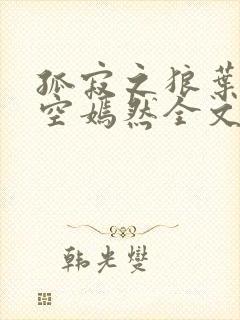 孤寂之狼叶
空嫣然全文
韩光燮